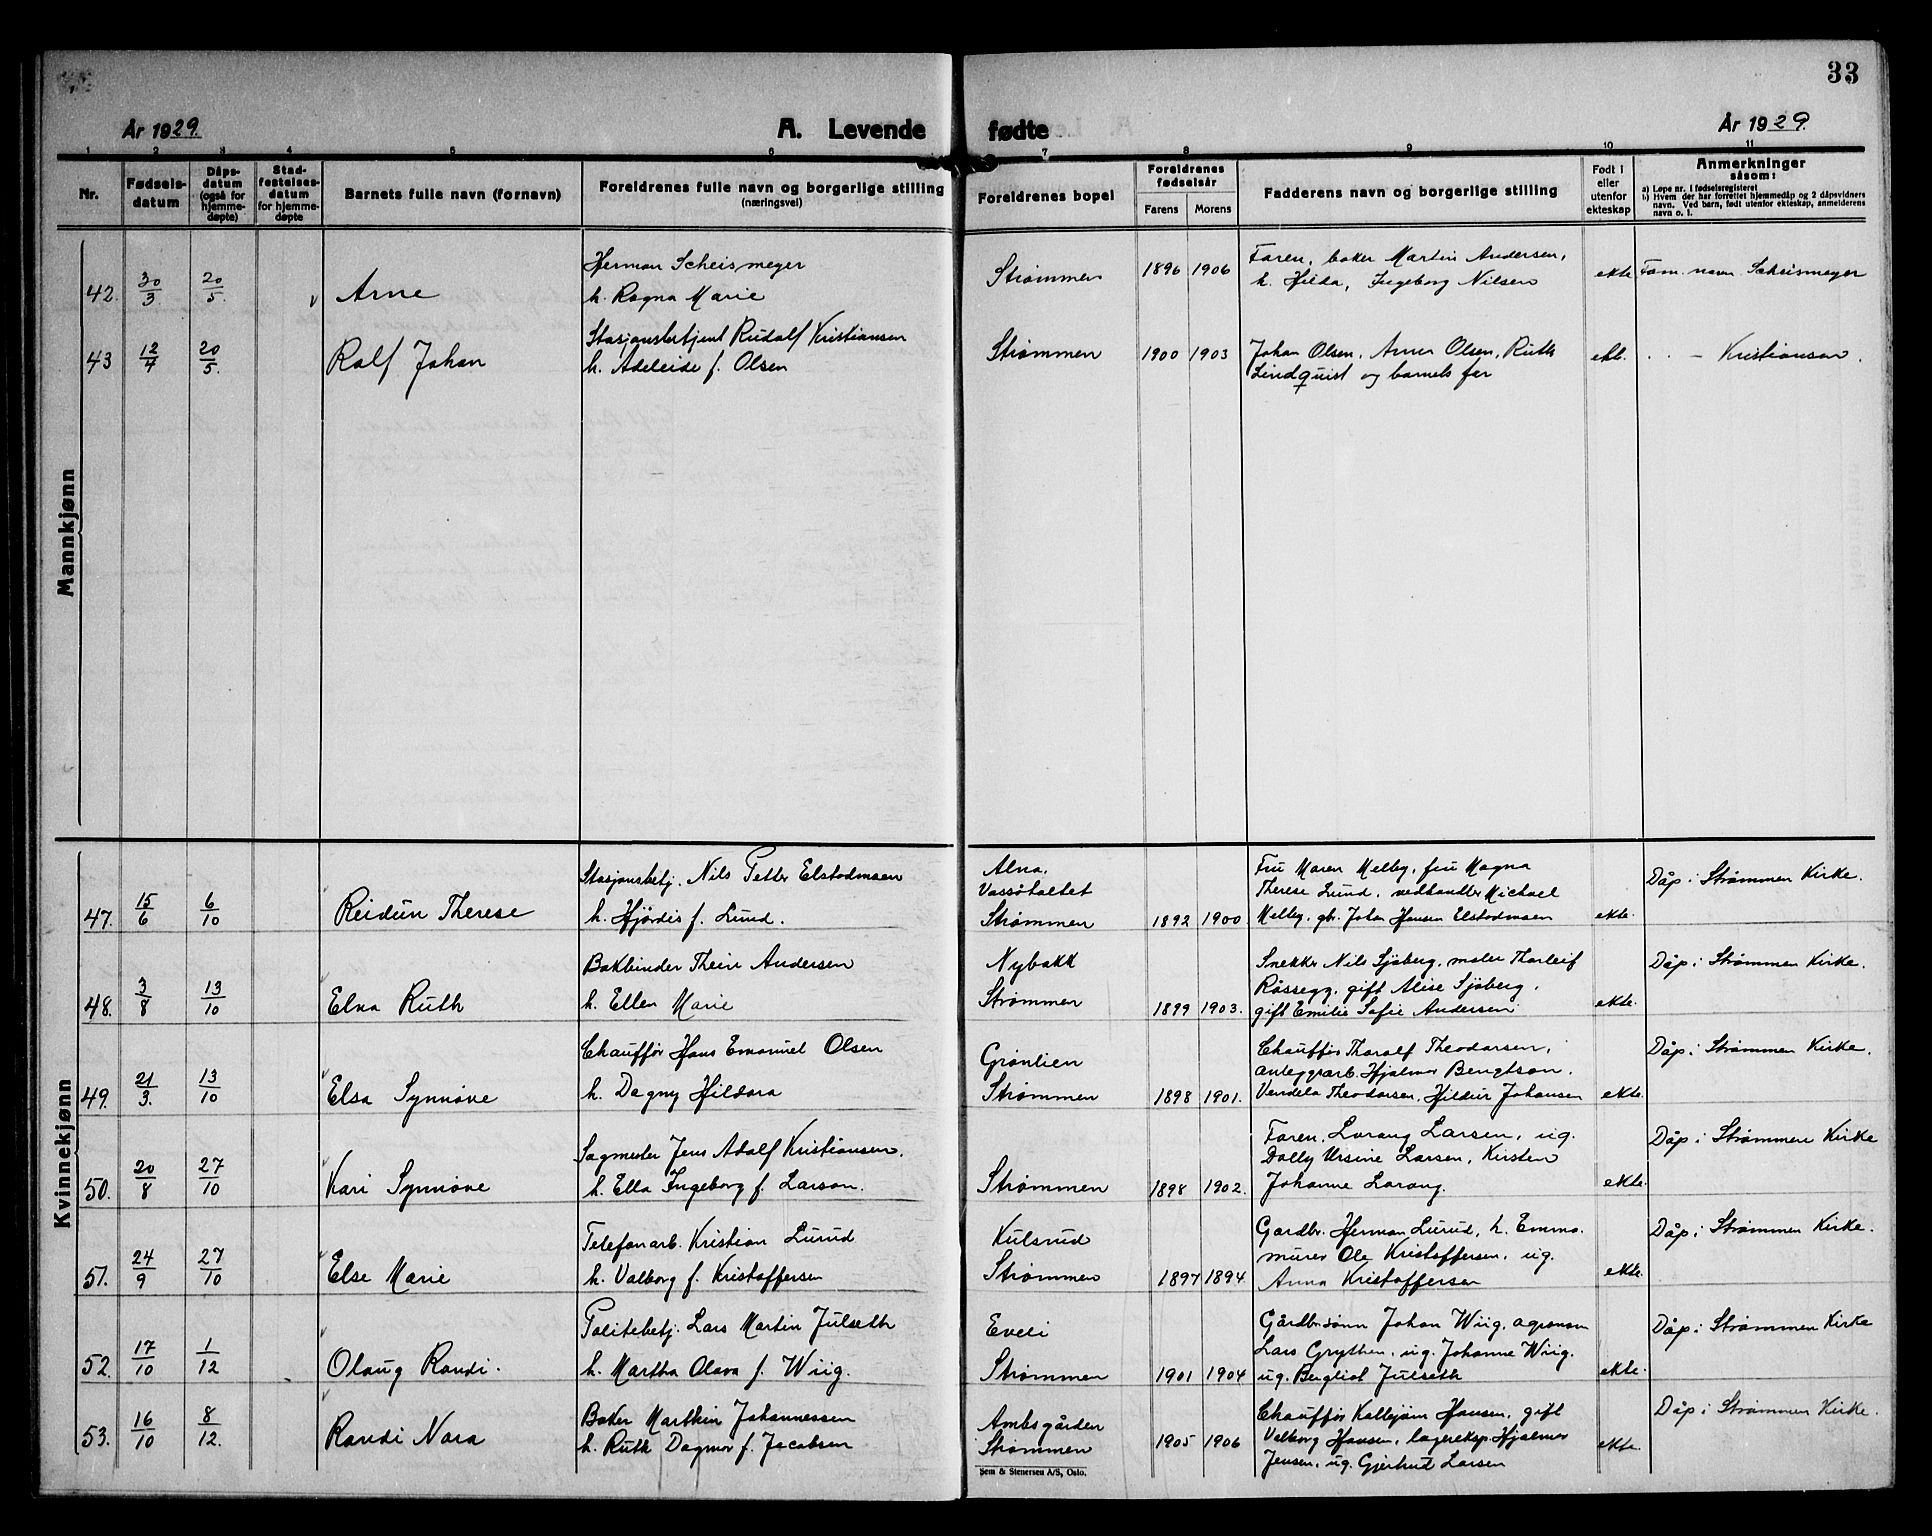 33
År 1929.
A. Levende fødte
År 1929.
1 2 3 4 5 6 7 8 9 10 11
Nr.
Fødsels-
datum
Dåps-
datum
(også for
hjemme-
døpte)
Stad-
festelses-
datum
for hjemme-
døpte
Barnets fulle navn (fornavn)
Foreldrenes fulle navn og borgerlige stilling
(næringsvei)
Foreldrenes bopel
Foreldrenes
fødselsår
Farens
Morens
Fadderens navn og borgerlige stilling
Født i
eller
utenfor
ekteskap
Anmerkninger
såsom:
a) Løpe nr. i fødselsregisteret
b) Hvem der har forrettet hjemmedåp og 2 dåpsvidners
navn. Ved barn, født utenfor ekteskap, anmelderens
navn o. l.
Mannkjønn
42. 30/3 20/5. Arne
Herman Scheismeyer
h. Ragna Marie
Strømmen 1896 1906
Faren, baker Martin Andersen,
h. Hilda, Ingeborg Nilsen
ekte Fam. navn Scheismeyer
43 12/4 20/5. Rolf Johan
Stasjonsbetjent Rudolf Kristiansen
h. Adeleide f. Olsen
Strømmen 1900 1903
Johan Olsen, Arne Olsen, Ruth
Lindquist og barnets far
ekt. . . - Kristiansen.
Kvinnekjønn
47. 15/6 6/10 Reidun Therese
Stasjonsbetj. Nils Petter Elstadmoen
h. Hjørdis f. Lund.
Alna,
Strømmen 1892 1900
Fru Maren Melby, fru Magna
Therese Lund, vedhandler Michael
Melby, gbr. Johan Hansen Elstadmoen
ekte. Dåp i Strømmen Kirke.
48. 3/8 13/10 Elna Ruth
Bokbinder Andersen
h. Ellen Marie
Nybakk
Strømmen 1899 1903.
Snekker Nils Sjøberg, maler Thorleif
gift Alise Sjøberg,
gift Emilie Sofie Andersen
ekte. Dåp i Strømmen Kirke.
49. 21/3. 13/10 Elsa Synnøve
Chauffør Hans Emanuel Olsen
h. Dagny Hildora
Grønlien
Strømmen 1898 1901.
Chauffør Tharalf Theodorsen,
anleggsarb. Hjalmar Bengtson.
Vendela Theodorsen, Hildur Johansen
ekte. Dåp i Strømmen Kirke.
50. 20/8 27/10 Kari Synnøve
Sagmester Jens Adolf Kristiansen.
h. Ella Ingeborg f. Larson.
Strømmen 1898 1902.
Faren, Lorang Larsen, ug.
Dolly Ursine Larsen, Kirsten
Johanne Lorang.
ekte. Dåp i Strømmen Kirke
51. 24/9 27/10 Else Marie
Telefonarb. Kristian Lurud
h. Valborg f. Kristoffersen
Kulsrud
Strømmen 1897 1894
Gardbr. Herman Lurud, h. Emma.
murer Ole Kristoffersen, ug.
Anna Kristoffersen
ekte. Dåp i Strømmen Kirke.
52. 17/10 1/12 Olaug Randi.
Politibetj. Lars Martin Julseth
h. Martha Olava f. Wiig.
Eveli
Strømmen 1901 1904
Gårdbr.sønn Johan Wiig, agronom
Lars Grythen, ug. Johanne Wiig.
ug. Bergliot Julseth
ekte. Dåp i Strømmen Kirke
53. 16/10 8/12. Randi Nora
Baker Marthin Johannessen
h. Ruth Dagmar f. Jacobsen
Ambsgården
Strømmen 1905 1906
Chauffør Kallejom Hansen, gift
Valborg Hansen, lagereksp. Hjalmar
Jensen, ug. Gjertrud Larsen
ekte. Dåp i Strømmen Kirke.
Sem & Stenersen A/S, Oslo.